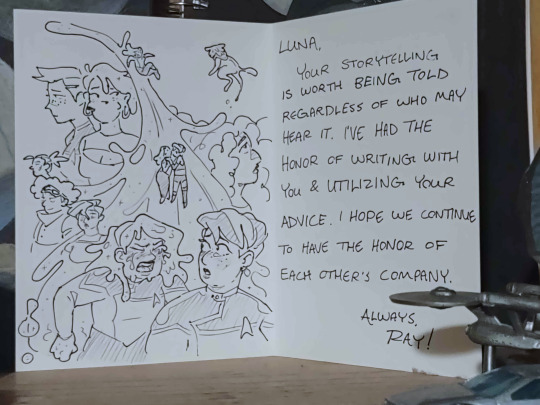 LUNA,
YOUR STORYTELLING
IS WORTH BEING TOLD
REGARDLESS OF WHO MAY
HEAR IT. I'VE HAD THE
HONOR OF WRITING WITH
YOU & UTILIZING YOUR
ADVICE. I HOPE WE CONTINUE
TO HAVE THE HONOR OF
EACH OTHER'S COMPANY.
ALWAYS,
RAY!